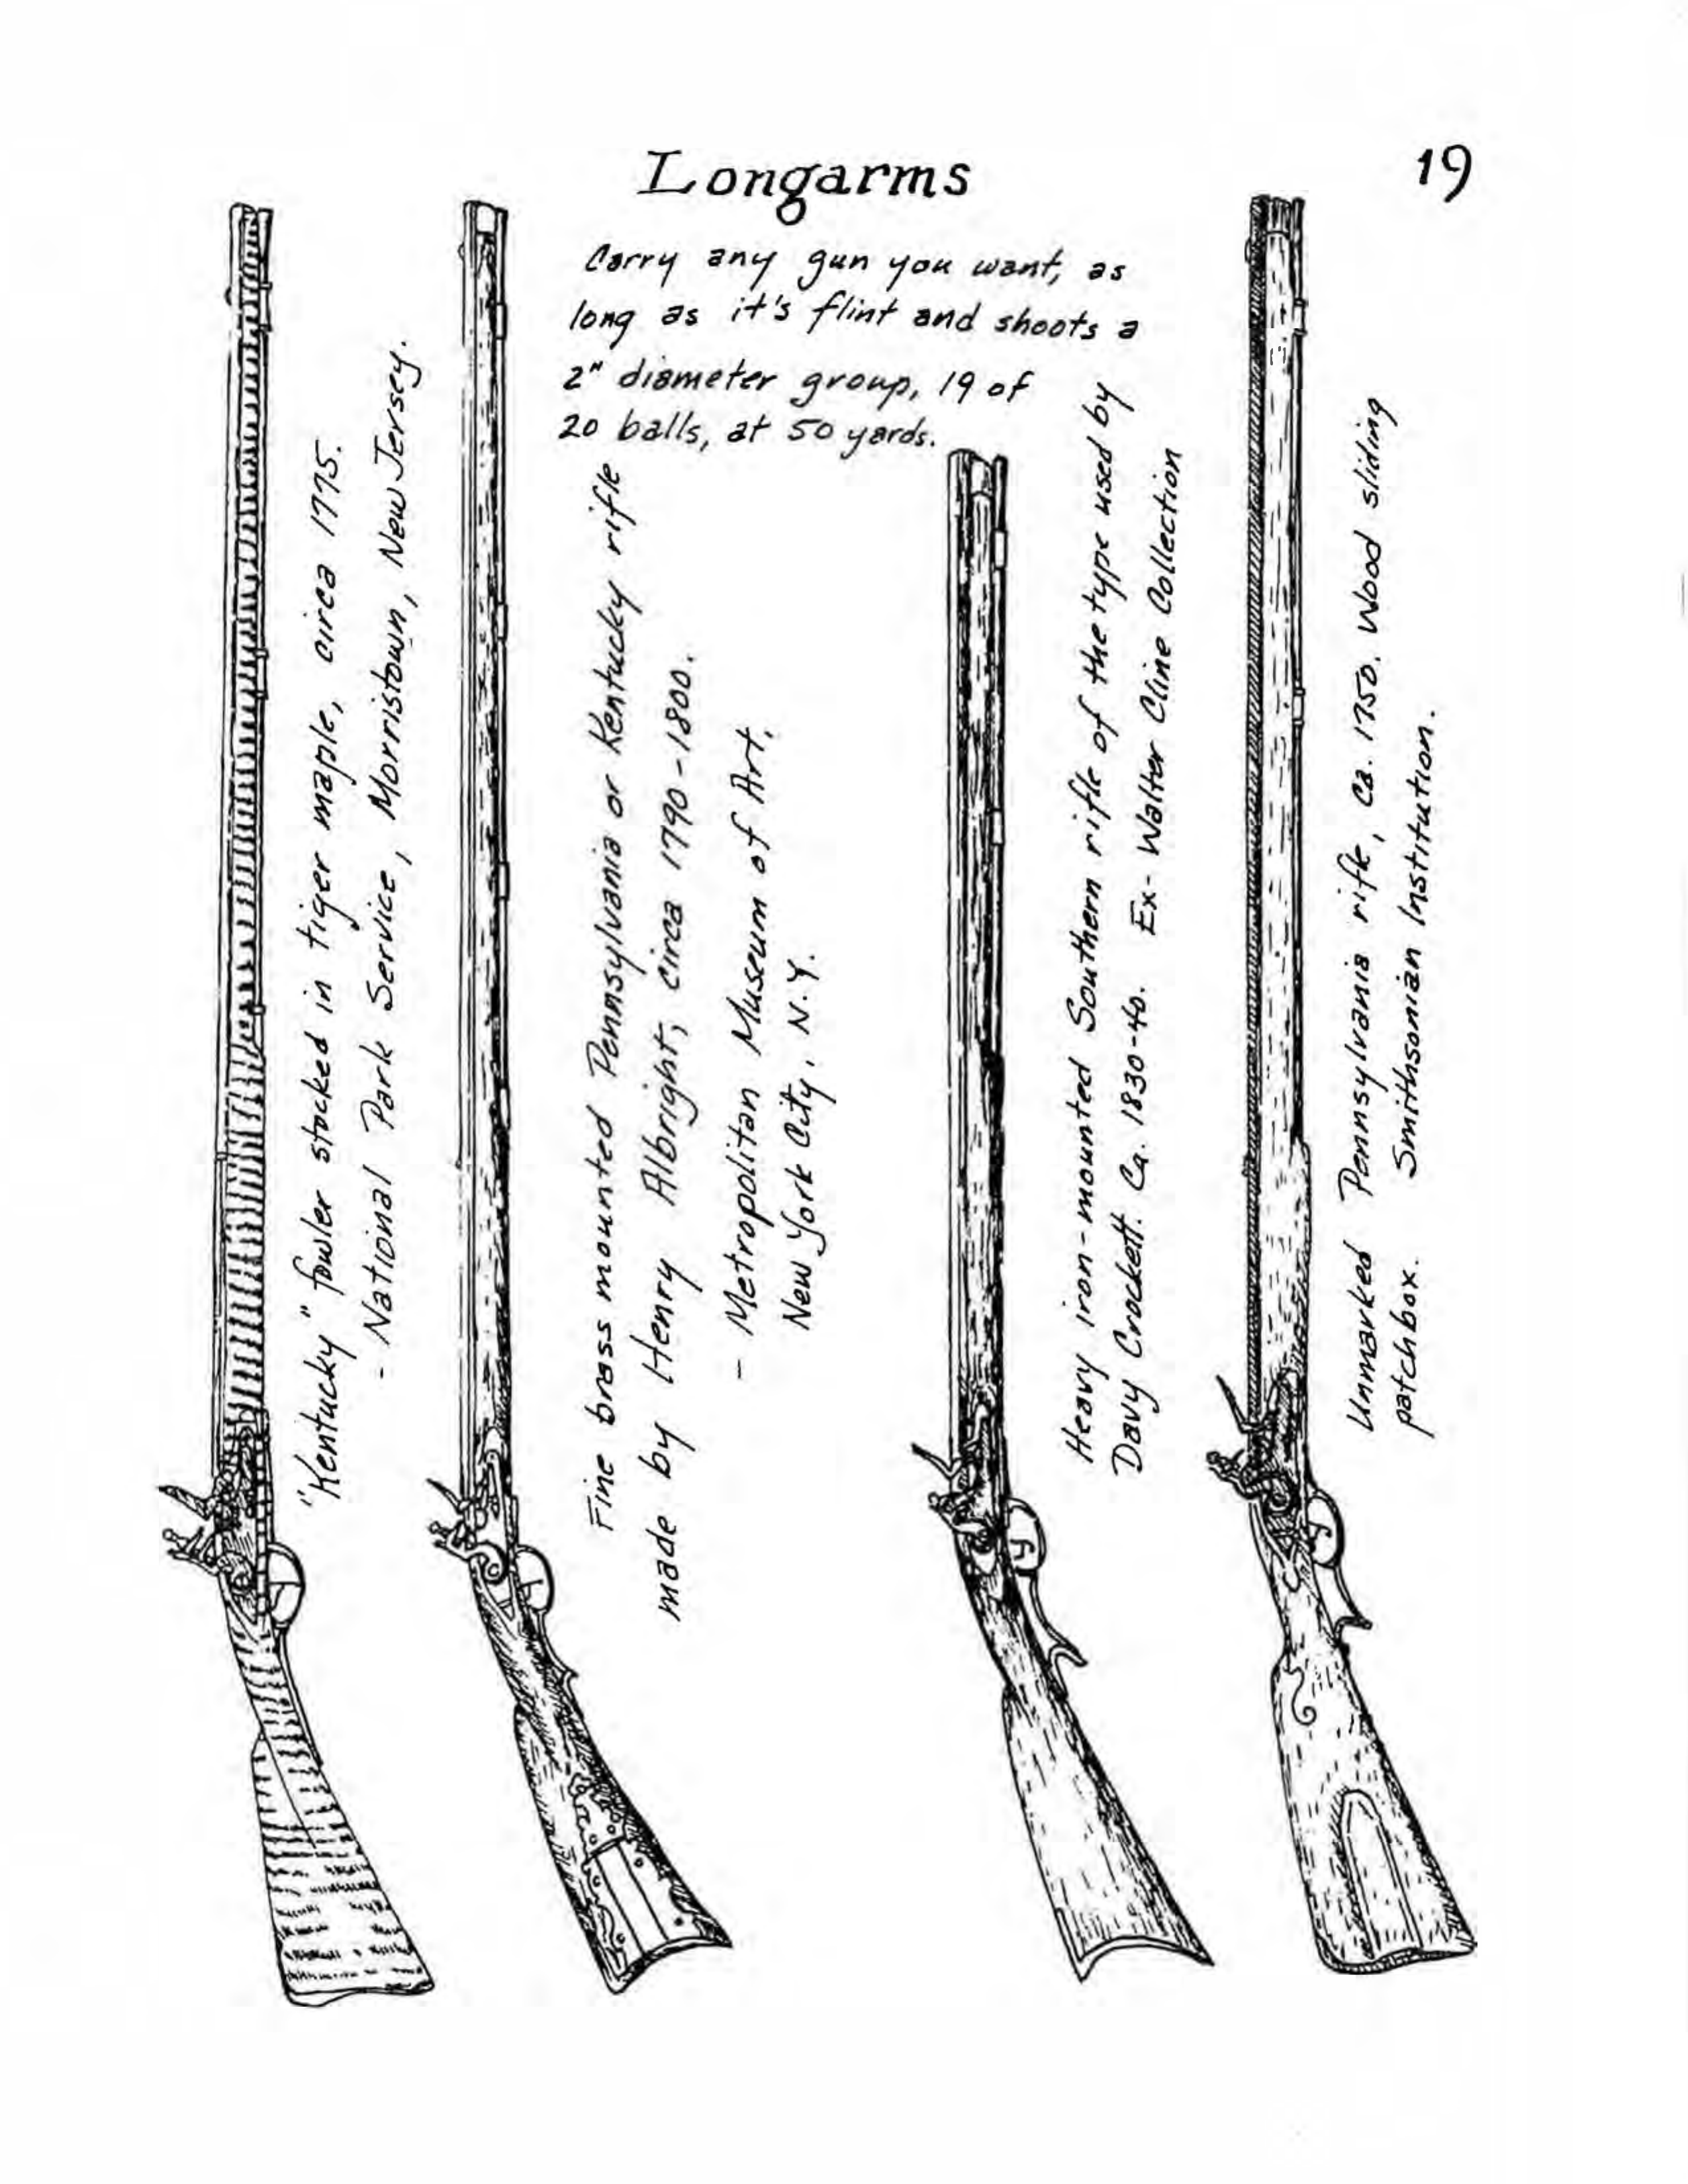 Longarms
19
Carry any gun you want, as
long as it's flint and shoots a
2" diameter group, 19 of
20 balls, at 50 yards.
"Kentucky" fowler stocked in tiger maple, circa 1775.
- National Park Service, Morristown, New Jersey.
Fine brass mounted Pennsylvania or Kentucky rifle
made by Henry Albright, circa 1790-1800.
- Metropolitan Museum of Art,
New York City, N.Y.
Heavy iron-mounted Southern rifle of the type used by
Davy Crockett. Ca. 1830-40. Ex- Walter Cline Collection
Unmarked Pennsylvania rifle, ca. 1750. Wood sliding
patchbox. Smithsonian Institution.